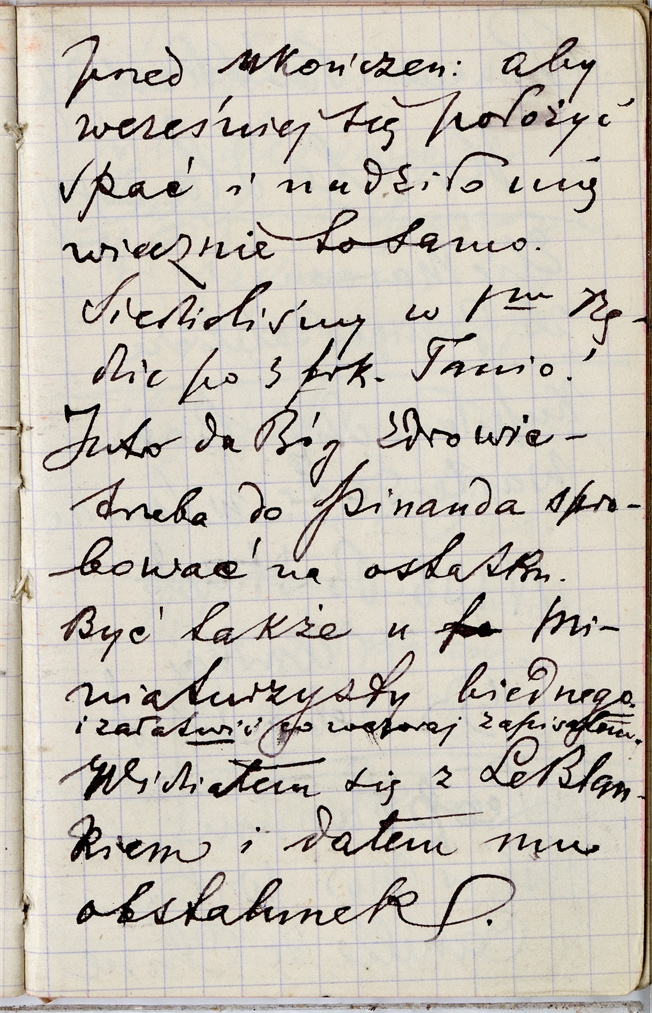 przed ukończen: aby
wcześniej się położyć
spać i nudziło mię
wiecznie to samo.
Siedzieliśmy w 1ym Rzę-
dzie po 3 frk. Tanio!
Jutro da Bóg zdrowie –
trzeba do Pinauda spro-
bować na ostatku.
Być także u Mi-
niaturzysty biednego.
i załatwić co wczoraj zapisałem.
Widziałem się z LeBlan-
kiem i dałem mu
obstalunek.